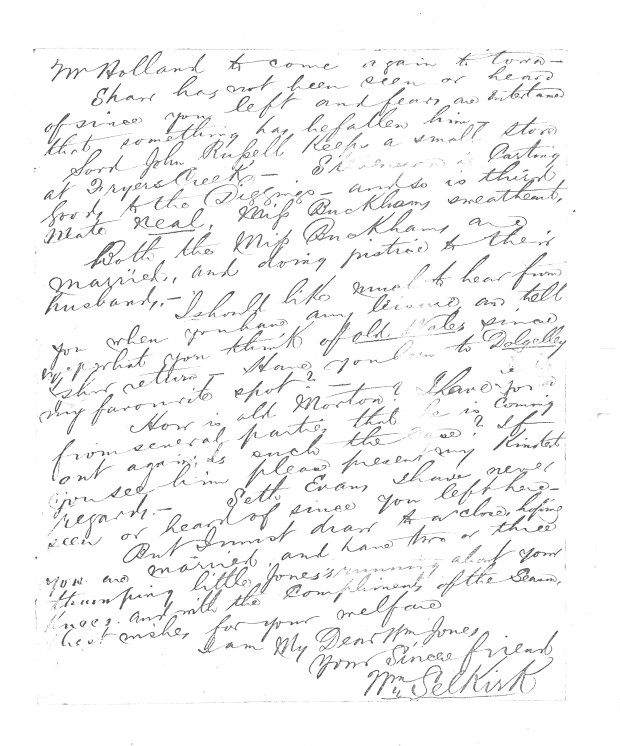 Wm Holland to come again to town -
Shaw has not been seen or heard
of since you left and fears are entertained
that something has befallen him -
Lord John Russell Keeps a small store
at Fryers Creek - is Carting
Goods to the Diggings - and so is third
Mate Neal, Miss Buckhams sweatheart,
Both the Miss Buckhams are
married, and doing justice to their
husbands, -
I should like much to hear from
you when you have any leisure and tell
me what you think of old Wales since
your return - Have you been to Dolgelley
my favourite spot? -
How is old Morton? I have
from several parties that he is Coming
out again is such the case? If
you see him please present my Kindest
regards -
Seth Evans I have never
seen or heard of since you left here -
But I must draw to a close, hoping
you are married and have two or three
thumping little Jones's running about your
Knees. and with the Compliments of the Season,
best wishes for your welfare
I am My Dear Wm Jones
Your Sincere friend
Wm Selkirk